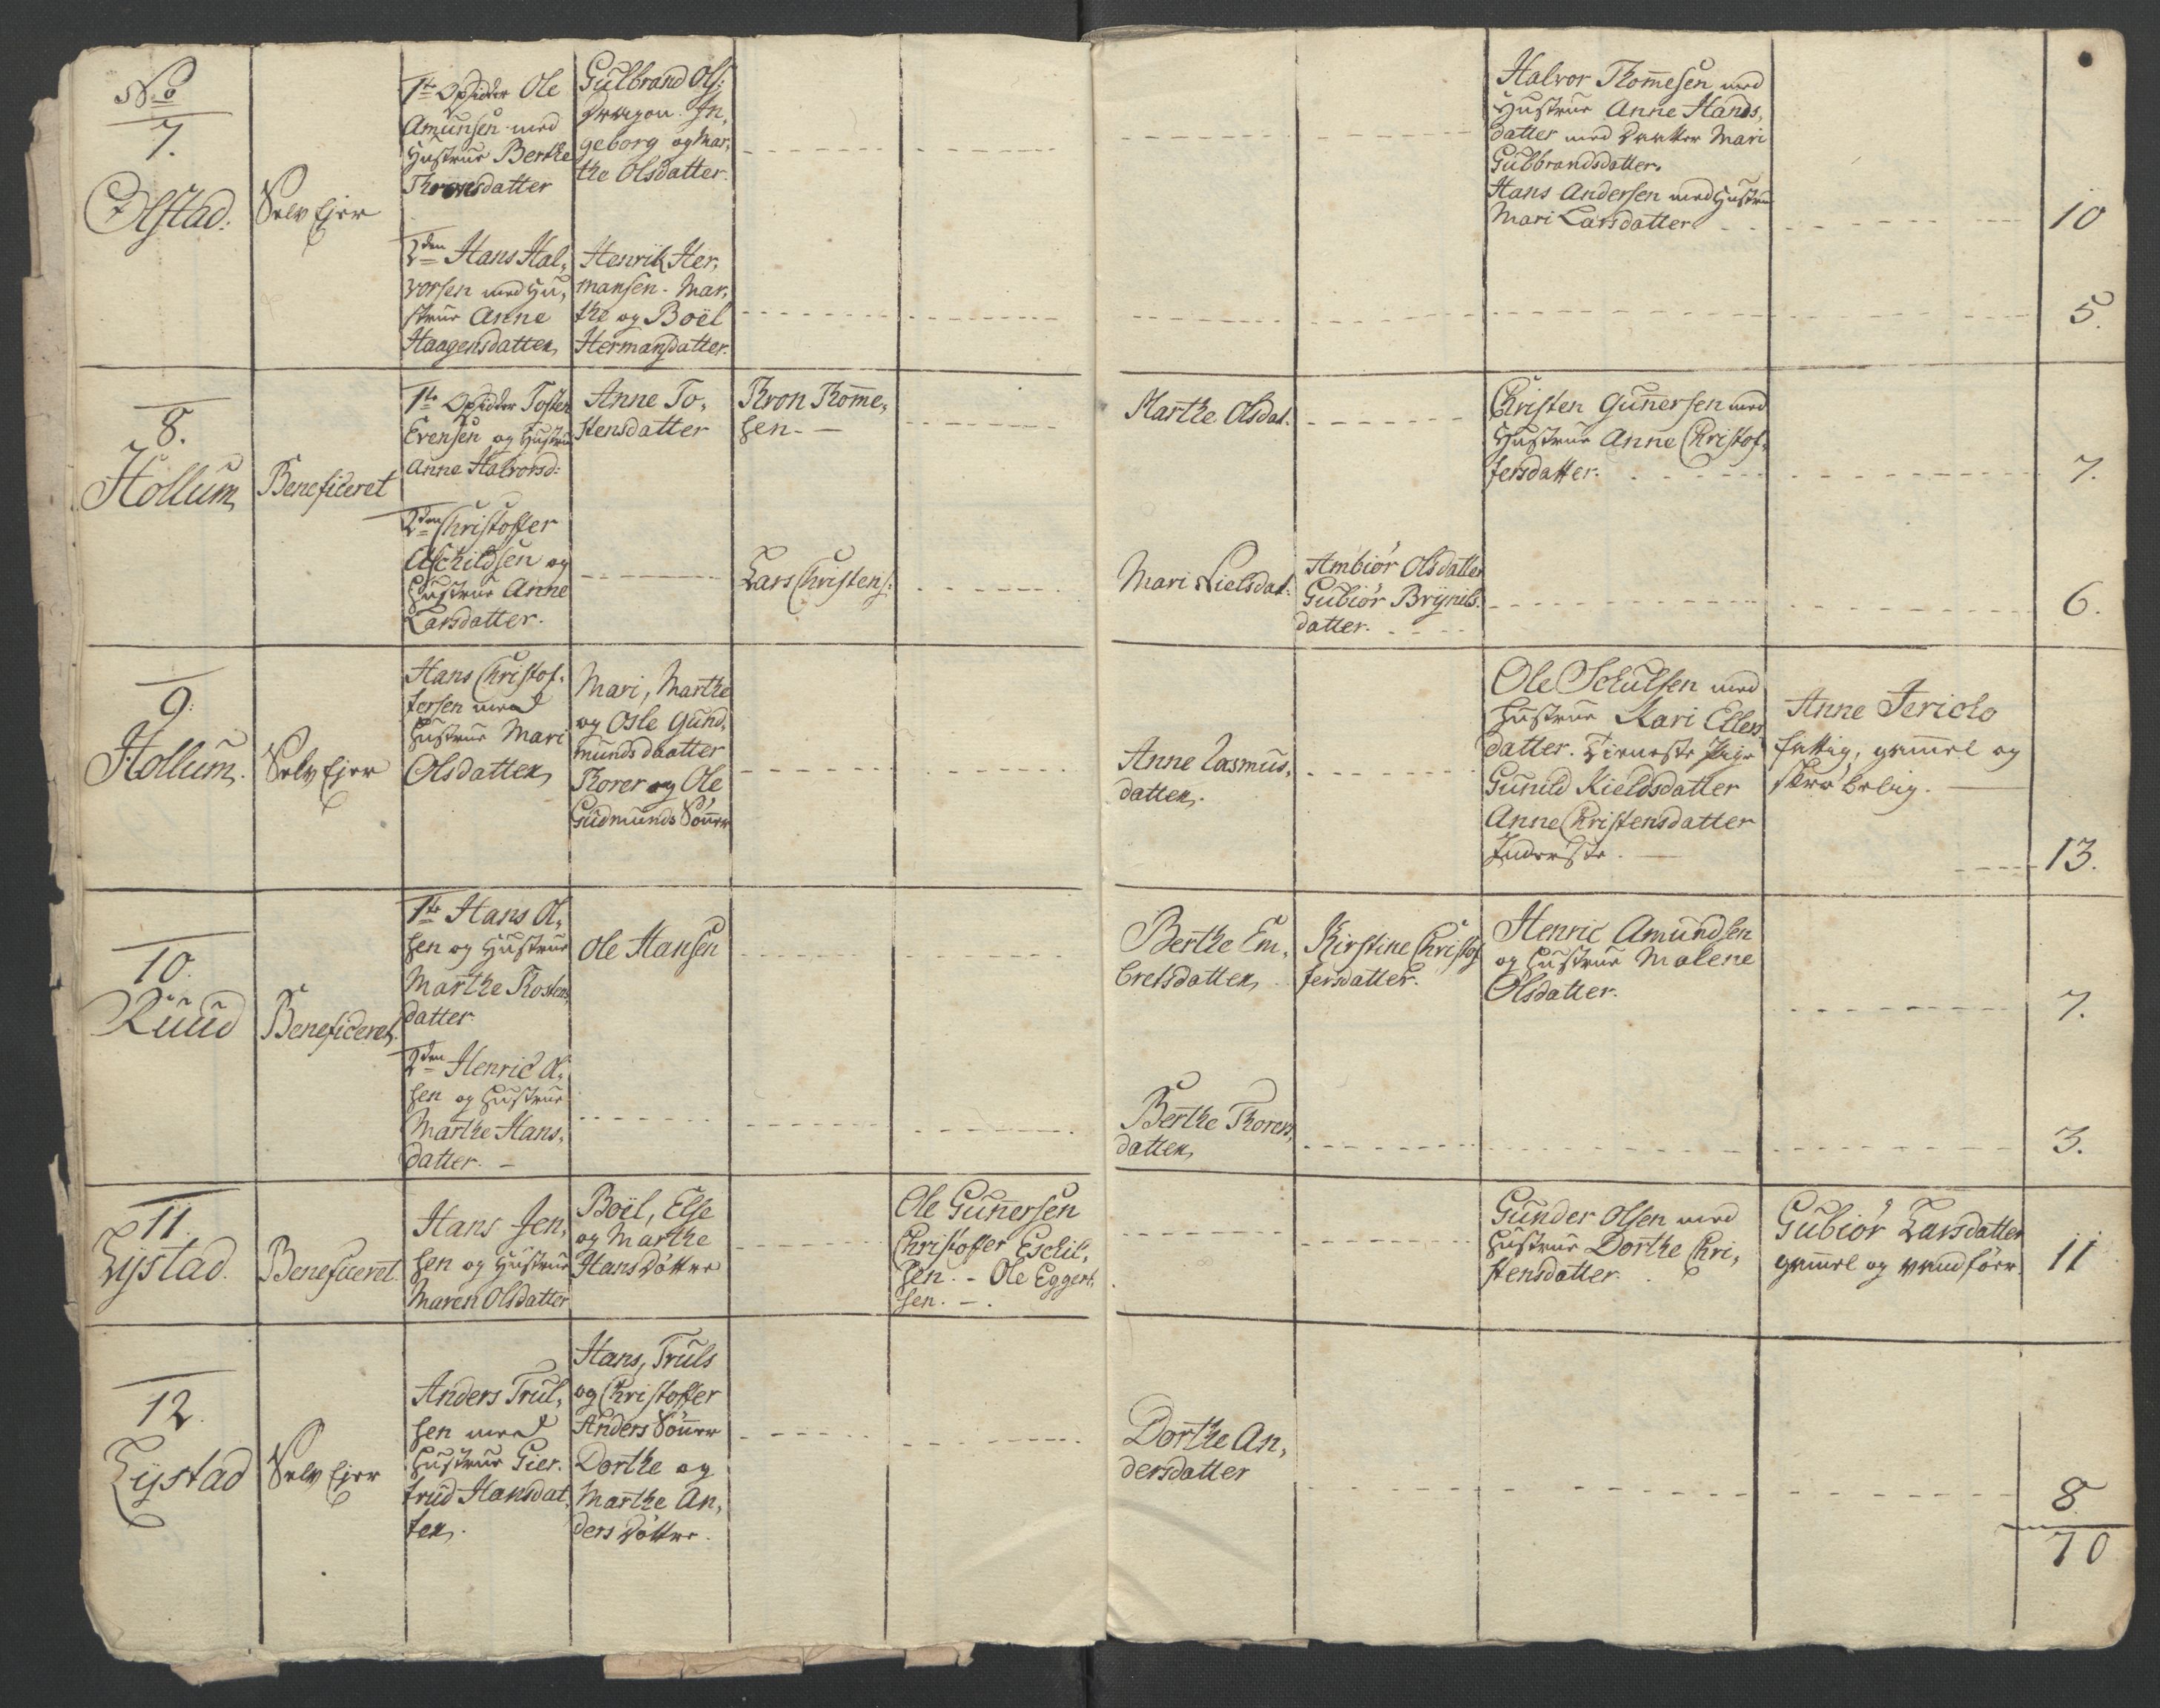 No
7.
Olstad.
Selv Ejer
1te Opsidder Ole
Amunsen med
Hustrue Berthe
Thronsdatter
Gulbrand Ols:
Dragon. In,
geborg og Mar,
the Olsdatter.
Halvor Thom̄esen med
Hustrue Anne Hands,
datter med Daatter Mari
Gulbrandsdatter.
Hans Andersen med Hustrue
Mari Larsdatter
10
2den Hans Hal,
vorsen med Hu,
strue Anne
Haagensdatter,
Henrik Her,
mansen. Mar,
the og Boël
Hermansdatter.
5.
8.
Hollum,
Beneficeret
1te Opsidder Tosten
Evensen og Hustrue
Anne Halvorsd:
Anne To,
stensdatter
Thron Thom̄e,
sen. —
Marthe Olsdat.
Christen Gun̄ersen med
Hustrue Anne Christof,
fersdatter.
7.
2den Christoffer
Aschildsen og
Hustrue Anne
Larsdatter.
Lars Christens:
Mari Nielsdat:
Ambiör Olsdatter
Gubiör Brynils.
datter.
6.
9.
Hollum.
Selv Ejer
Hans Christof,
fersen med
Hustrue Mari
Olsdatter,
Mari, Marthe
og Osle Gund,
munds daatter
Thorer og Ole
Gudmunds Sönner
Anne Rasmus,
datter.
Ole Schulsen med
Hustrue Kari Ellers
datter. Tieneste Pige
Gunild Kieldsdatter
Anne Christensdatter
Inderste.
Anne Jericho
fattig, gam̄el og
skröbelig.
13.
10.
Ruud
Beneficeret.
1te Hans Ol,
sen og Hustrue
Marthe Thostens,
datter.
Ole Hansen
Berthe Em,
bretsdatter,
Kirstine Christof
fersdatter.
Henric Amundsen
og Hustrue Malene
Olsdatter.
7.
2den Henric Ol,
sen og Hustrue
Marthe Hans,
datter. —
Berthe Thorers,
datter,
3.
11.
Lystad.
Beneficeret.
Hans Jen,
sen og Hustrue
Maren Olsdatter
Boël, Else
og Marthe
Hans Döttre
Ole Gun̄ersen
Christoffer Eschil,
sen. - Ole Eggert,
sen. —.
Gunder Olsen med
Hustrue Dorthe Chri,
stensdatter.
Gubiör Larsdatter
gam̄el og vandför.
11
12.
Lystad
Selv Ejer
Anders Trul,
sen med
Hustrue Gier,
trud Hansdat,
ter.
Hans, Truls
og Christoffer
Anders Sönner
Dorthe og
Marthe An,
ders Döttre.
Dorthe An,
dersdatter
8.
70